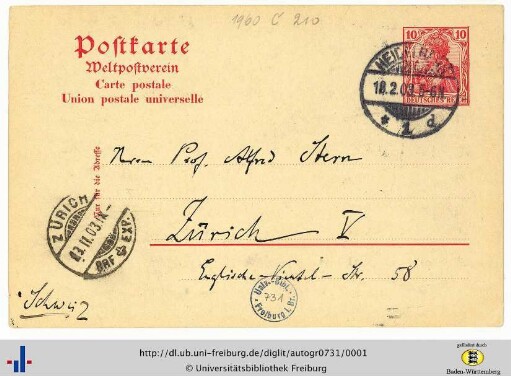 1960 C 210
Postkarte
Weltpostverein
Carte postale
Union postale universelle
10 10
DEUTSCHES REICH
HEIDELBERG
18.2.03. 5-6N
* 1 d
Nur für die Adresse
Herrn Prof. Alfred Stern
Zürich V
Englische-Viertel-Str. 58
Schweiz
ZÜRICH
BRF EXP.
Univ.-Bibl.
731
Freiburg i. Br.
http://dl.ub.uni-freiburg.de/diglit/autogr0731/0001
© Universitätsbibliothek Freiburg
gefördert durch
Baden-Württemberg